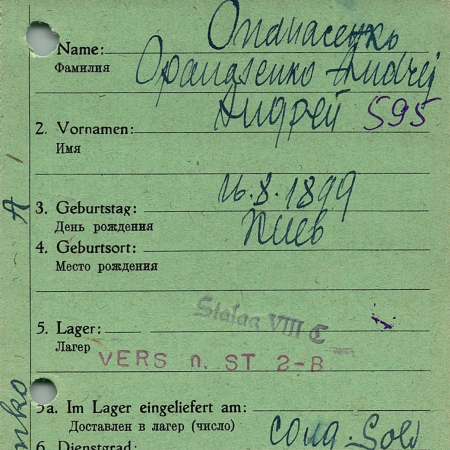 Опанасенко
Name: Opanasenko Andrej
Фамилия
Андрей 595
2. Vornamen:
Имя
16.8.1899
3. Geburtstag:
День рождения
Киев
4. Geburtsort:
Место рождения
Stalag VIII C
5. Lager:
Лагерь
VERS n. ST 2-B
5a. Im Lager eingeliefert am:
Доставлен в лагерь (число)
6. Dienstgrad: